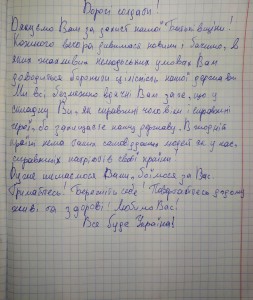 Дорогі солдати!
Дякуємо Вам за захист нашої Батьківщини!
Кожного вечора дивимося новини і бачимо, в
яких жахливих нелюдських умовах Вам
доводиться боронити цілісність нашої держави.
Ми всі, безмежно вдячні Вам за те, що у
складну Ви, як справжні чоловіки і справжні
герої, бо захищаєте нашу державу. В жодній
країні нема таких самовідданих людей як у нас,
справжніх патріотів своєї країни.
Дуже пишаємося Вами, боїмося за Вас.
Тримайтесь! Бережіть себе! Повертайтесь додому
живі та здорові! Любимо Вас!
Все буде Україна!